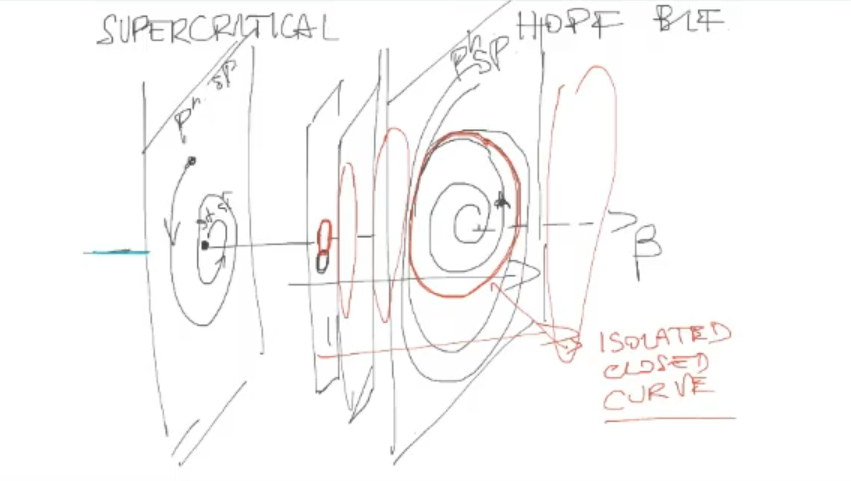 SUPERCRITICAL HOPF BIF.
Pʰ. SP
Pʰ SP
st st
β
0
ISOLATED
CLOSED
CURVE